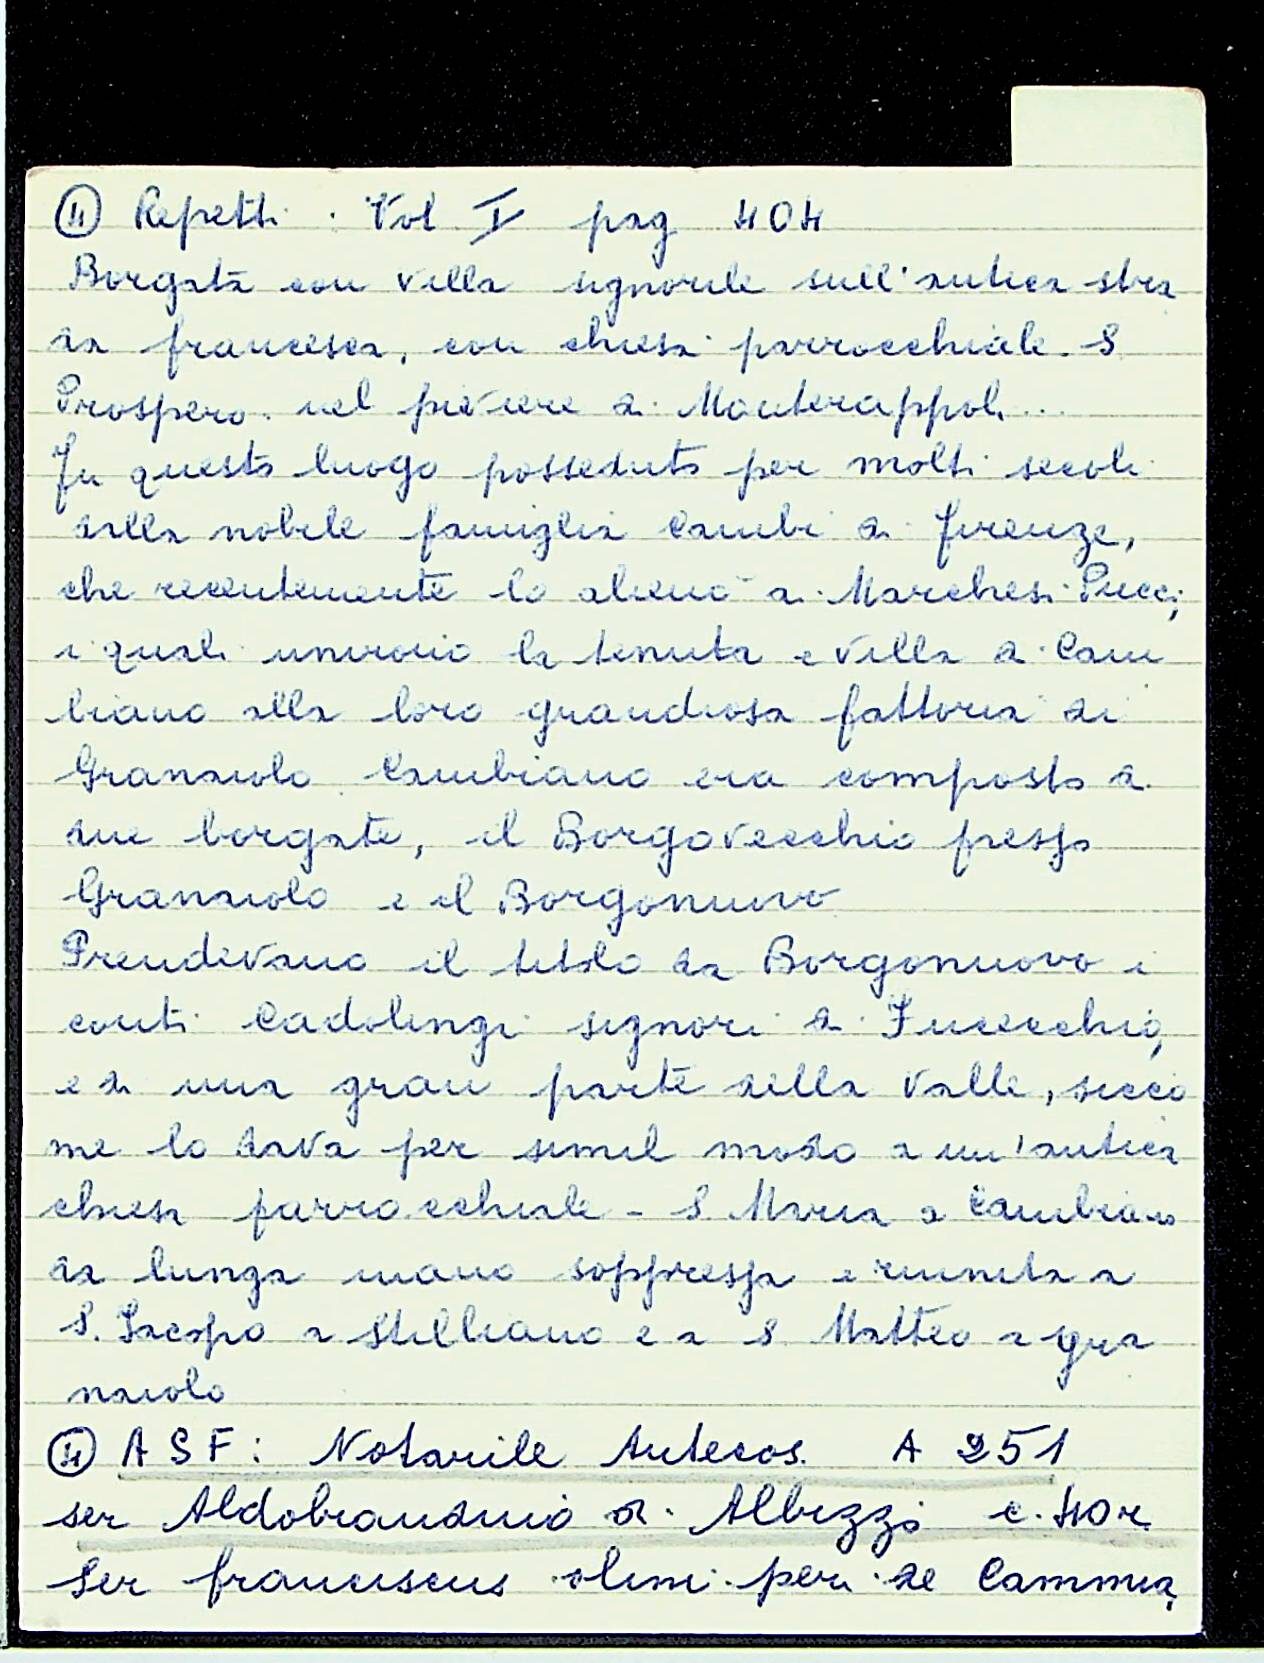 ④ Repetti: Vol I pag 404
Borgata con villa signorile sull'antica stra
da francesca, con chiesa parrocchiale S
Prospero nel piviere di Monterappoli...
Fu questo luogo posseduto per molti secoli
dalla nobile famiglia Cambi di Firenze,
che recentemente lo alienò ai Marchesi Pucci,
i quali unirono la tenuta e villa di Cam
biano alla loro grandiosa fattoria di
Granaiolo Cambiano era composto di
due borgate, il Borgovecchio presso
Granaiolo e il Borgonuovo
Prendevano il titolo da Borgonuovo i
conti Cadolingi signori di Fucecchio,
e di una gran parte della Valle, sicco
me lo dava per simil modo a un'antica
chiesa parrocchiale - S. Maria a Cambiano
da lunga mano soppressa e riunita a
S. Jacopo a Stilliano e a S Matteo a Gra
naiolo
④ ASF: Notarile Antecos. A 251
ser Aldobrandino di Albizzo c. 40r.
Ser franciscus olim peri de Cammia,